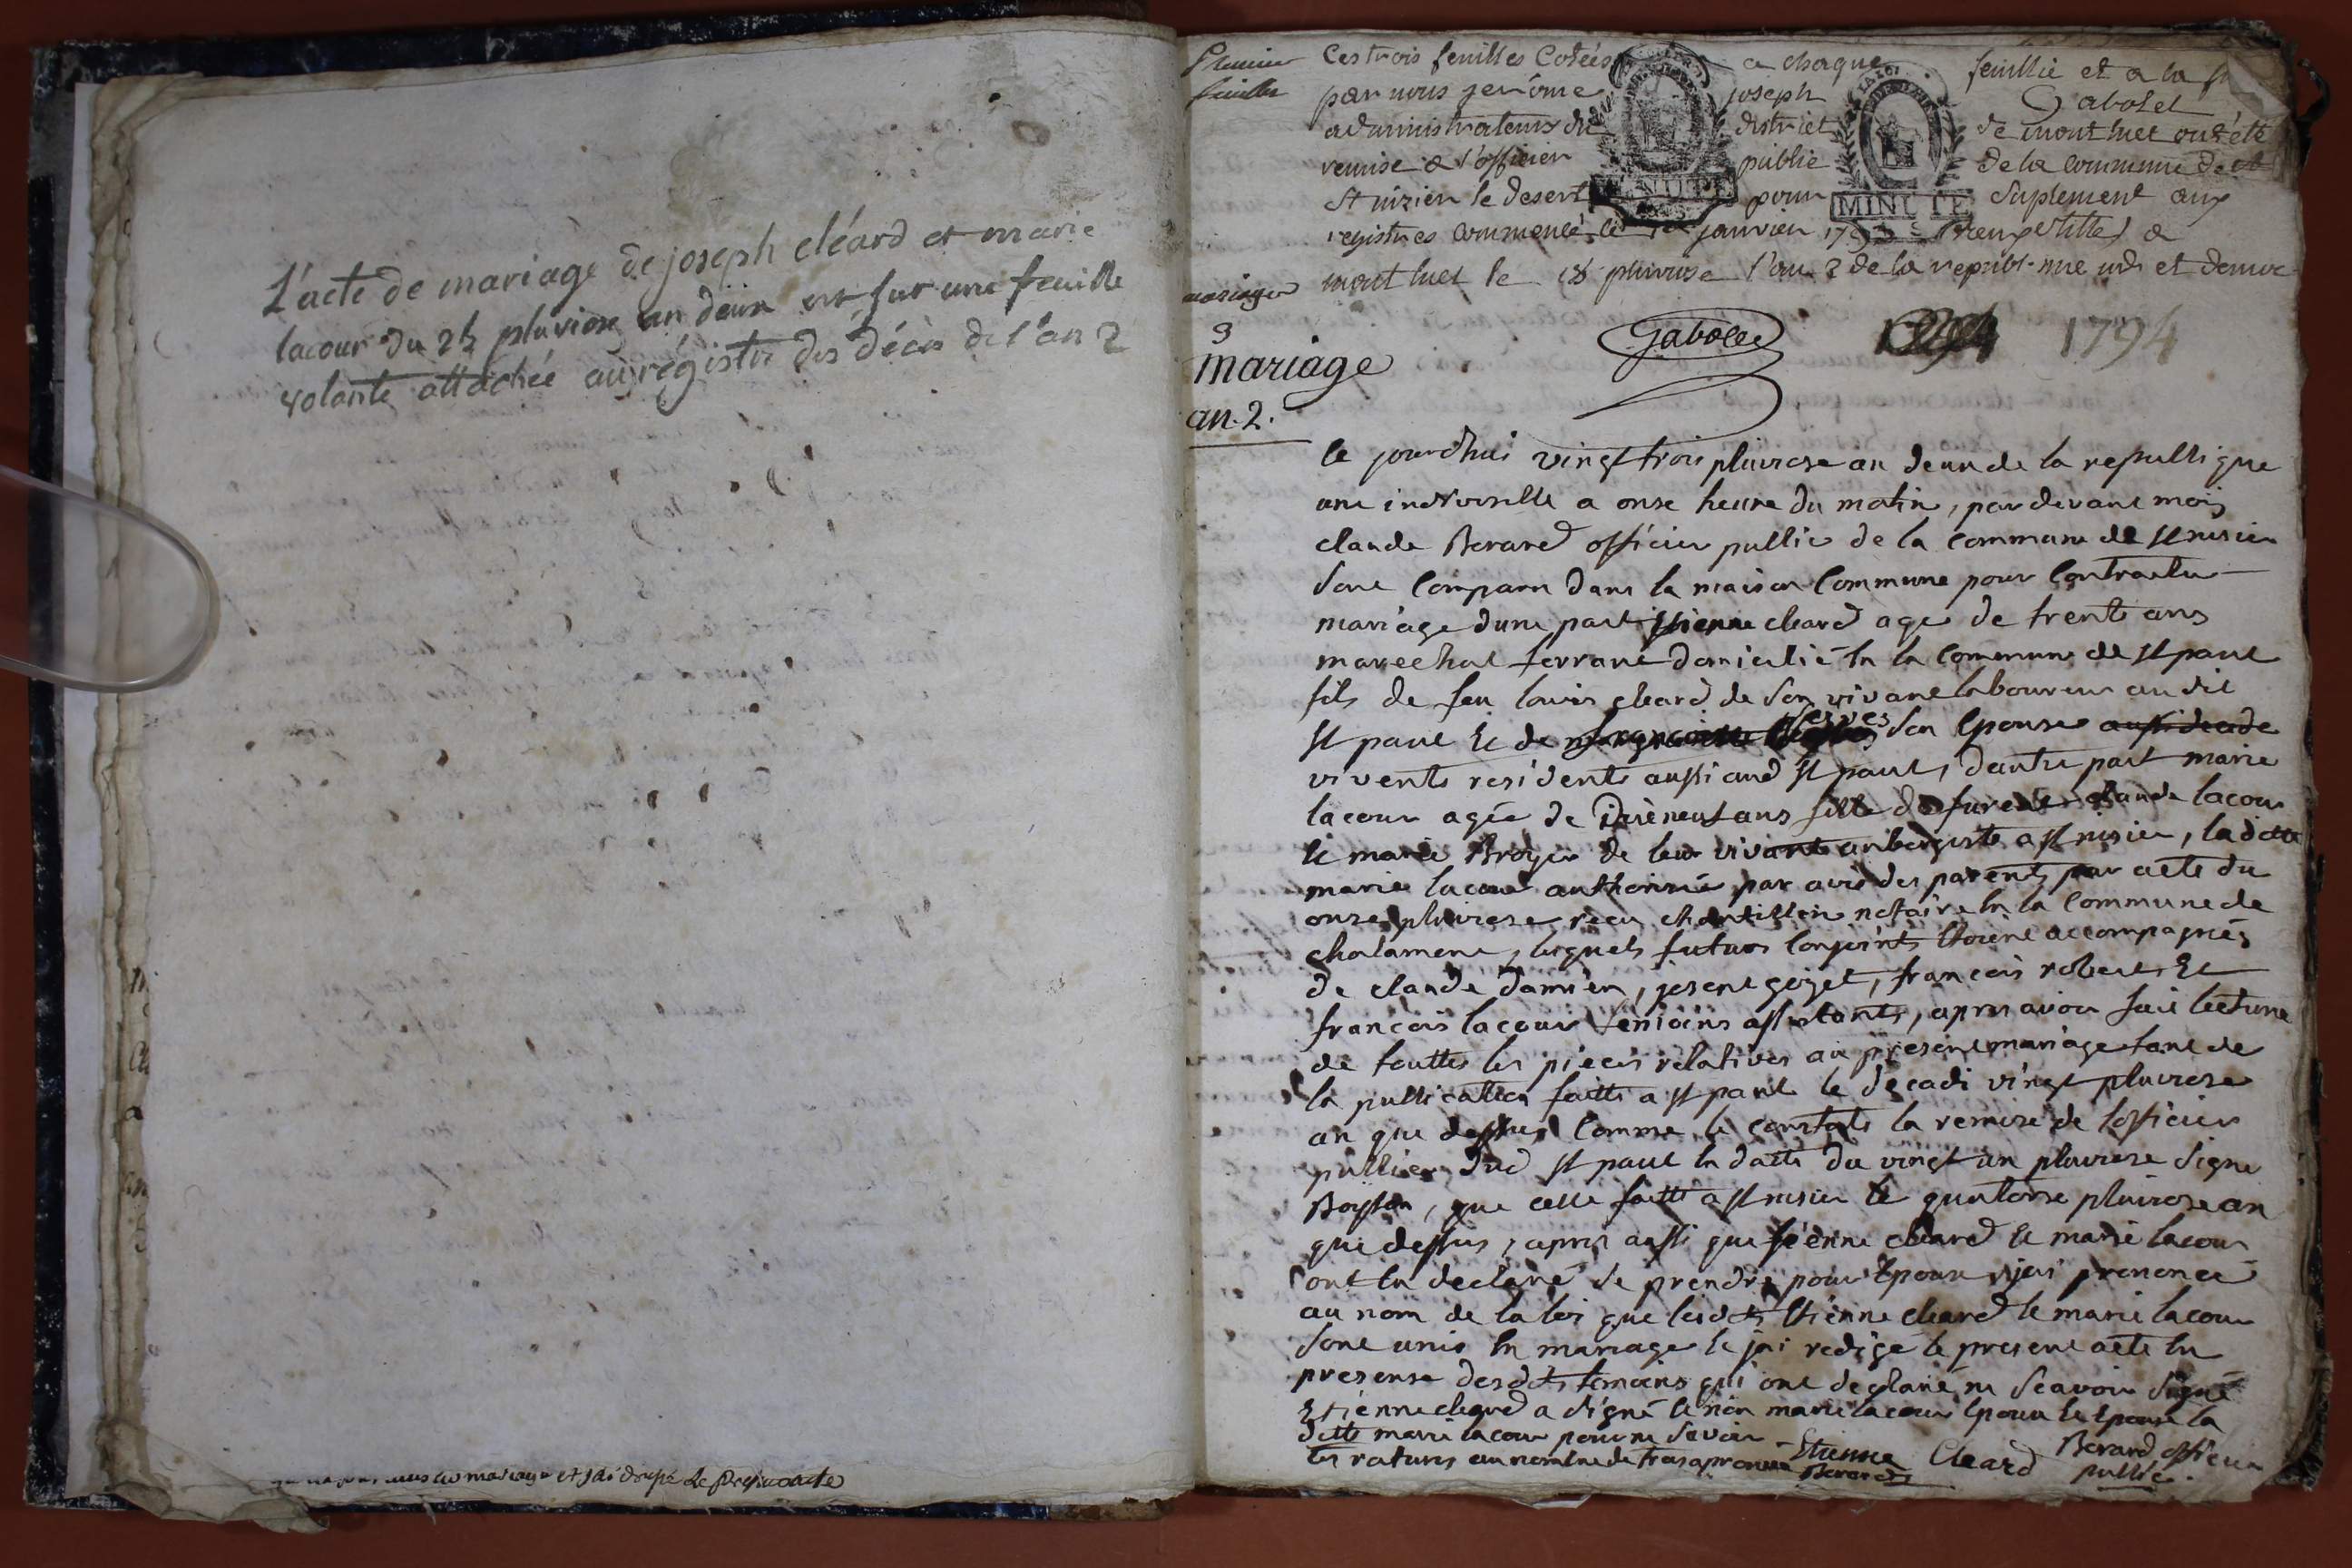 L'acte de mariage de joseph cléard et marie
lacour du 24 pluviose an deux est sur une feuille
volante attachée au régistre des décès de l'an 2
mariage et jai drapé le present acte
Premier
feuillet
Ces trois feuilles Cotées a chaque feuillie et a la
par nous jerôme joseph Gabolet
administrateur du district de montluel ont été
remise a l'officier public de la commune de
St nizier le desert pour suplement aux
registres commencé le 1er janvier 1793
montluel le 18 pluviose l'an 2 de la republ. une ind. et democ
mariages
3
mariage
an. 2.
Gabolet
1794
MINUTE
le jourdhui vingt trois pluviose an deux de la republique
une indivisible a onse heure du matin, pardevant moi
claude Berard officier public de la commune de St nisier
sont comparu dans la maison commune pour contracter
mariage dune part Etienne cleard agé de trente ans
marechal ferrant domicilié en la commune de St paul
fils de feu louis cleard de son vivant laboureur audit
St paul Et de son epouse
vivente residente aussi aud St paul, dautre part marie
lacour agée de diseneuf ans fille de furent claude lacour
Et marie Broyer de leur vivant aubergiste a St nisier, la ditte
marie lacour authorisée par avis des parents par acte du
onse pluviose recu chatillon notaire en la commune de
chalamont, lesquels futurs conjoints etoient accompagnés
de claude damien, josent gojet, francois robert Et
francois lacour temoins assistants, apres avoir fait lecture
de touttes les pieces relatives au present mariage tant de
la publication faitte a St paul le decadi vingt pluviose
an que dessus comme le constate la remise de lofficier
public dud St paul en datte du vingt un pluviose signe
Boysson, que celle faitte a St nisier le quatorse pluviose an
que dessus, apres aussi que Etienne cleard Et marie lacour
ont eu declaré se prendre pour epoux, jai prononcé
au nom de la loi que lesdts Etienne cleard Et marie lacour
sont unis en mariage Et jai redigé le present acte en
presense desdts temoins qui ont declaré ne scavoir signé
Etienne cleard a signé Et non marie lacour epoux Et epouse la
ditte marie lacour pour ne savoir
les ratures au nombre de trois aprouvé Etienne Cleard Berard officier
Berard public.